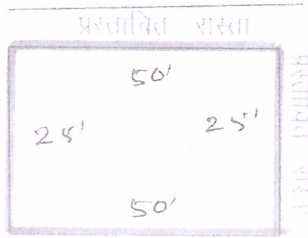 प्रस्तावित रास्ता
50'
25' 25'
50'